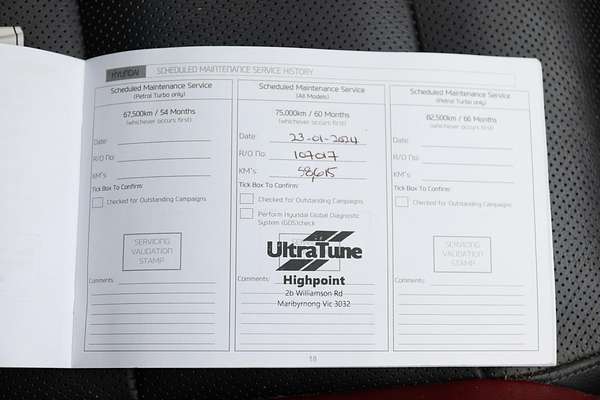 HYUNDAI SCHEDULED MAINTENANCE SERVICE HISTORY
Scheduled Maintenance Service
(Petrol Turbo only)
67,500km / 54 Months
(whichever occurs first)
Date:
R/O No:
KM's:
Tick Box To Confirm:
Checked for Outstanding Campaigns
SERVICING
VALIDATION
STAMP
Comments:
Scheduled Maintenance Service
(All Models)
75,000km / 60 Months
(whichever occurs first)
Date: 23-01-2024
R/O No:
KM's: 58,615
Tick Box To Confirm:
Checked for Outstanding Campaigns
Perform Hyundai Global Diagnostic
System (GDS)check
UltraTune
Highpoint
Comments:
2b Williamson Rd
Maribyrnong Vic 3032
Scheduled Maintenance Service
(Petrol Turbo only)
82,500km / 66 Months
(whichever occurs first)
Date:
R/O No:
KM's:
Tick Box To Confirm:
Checked for Outstanding Campaigns
SERVICING
VALIDATION
STAMP
Comments:
18